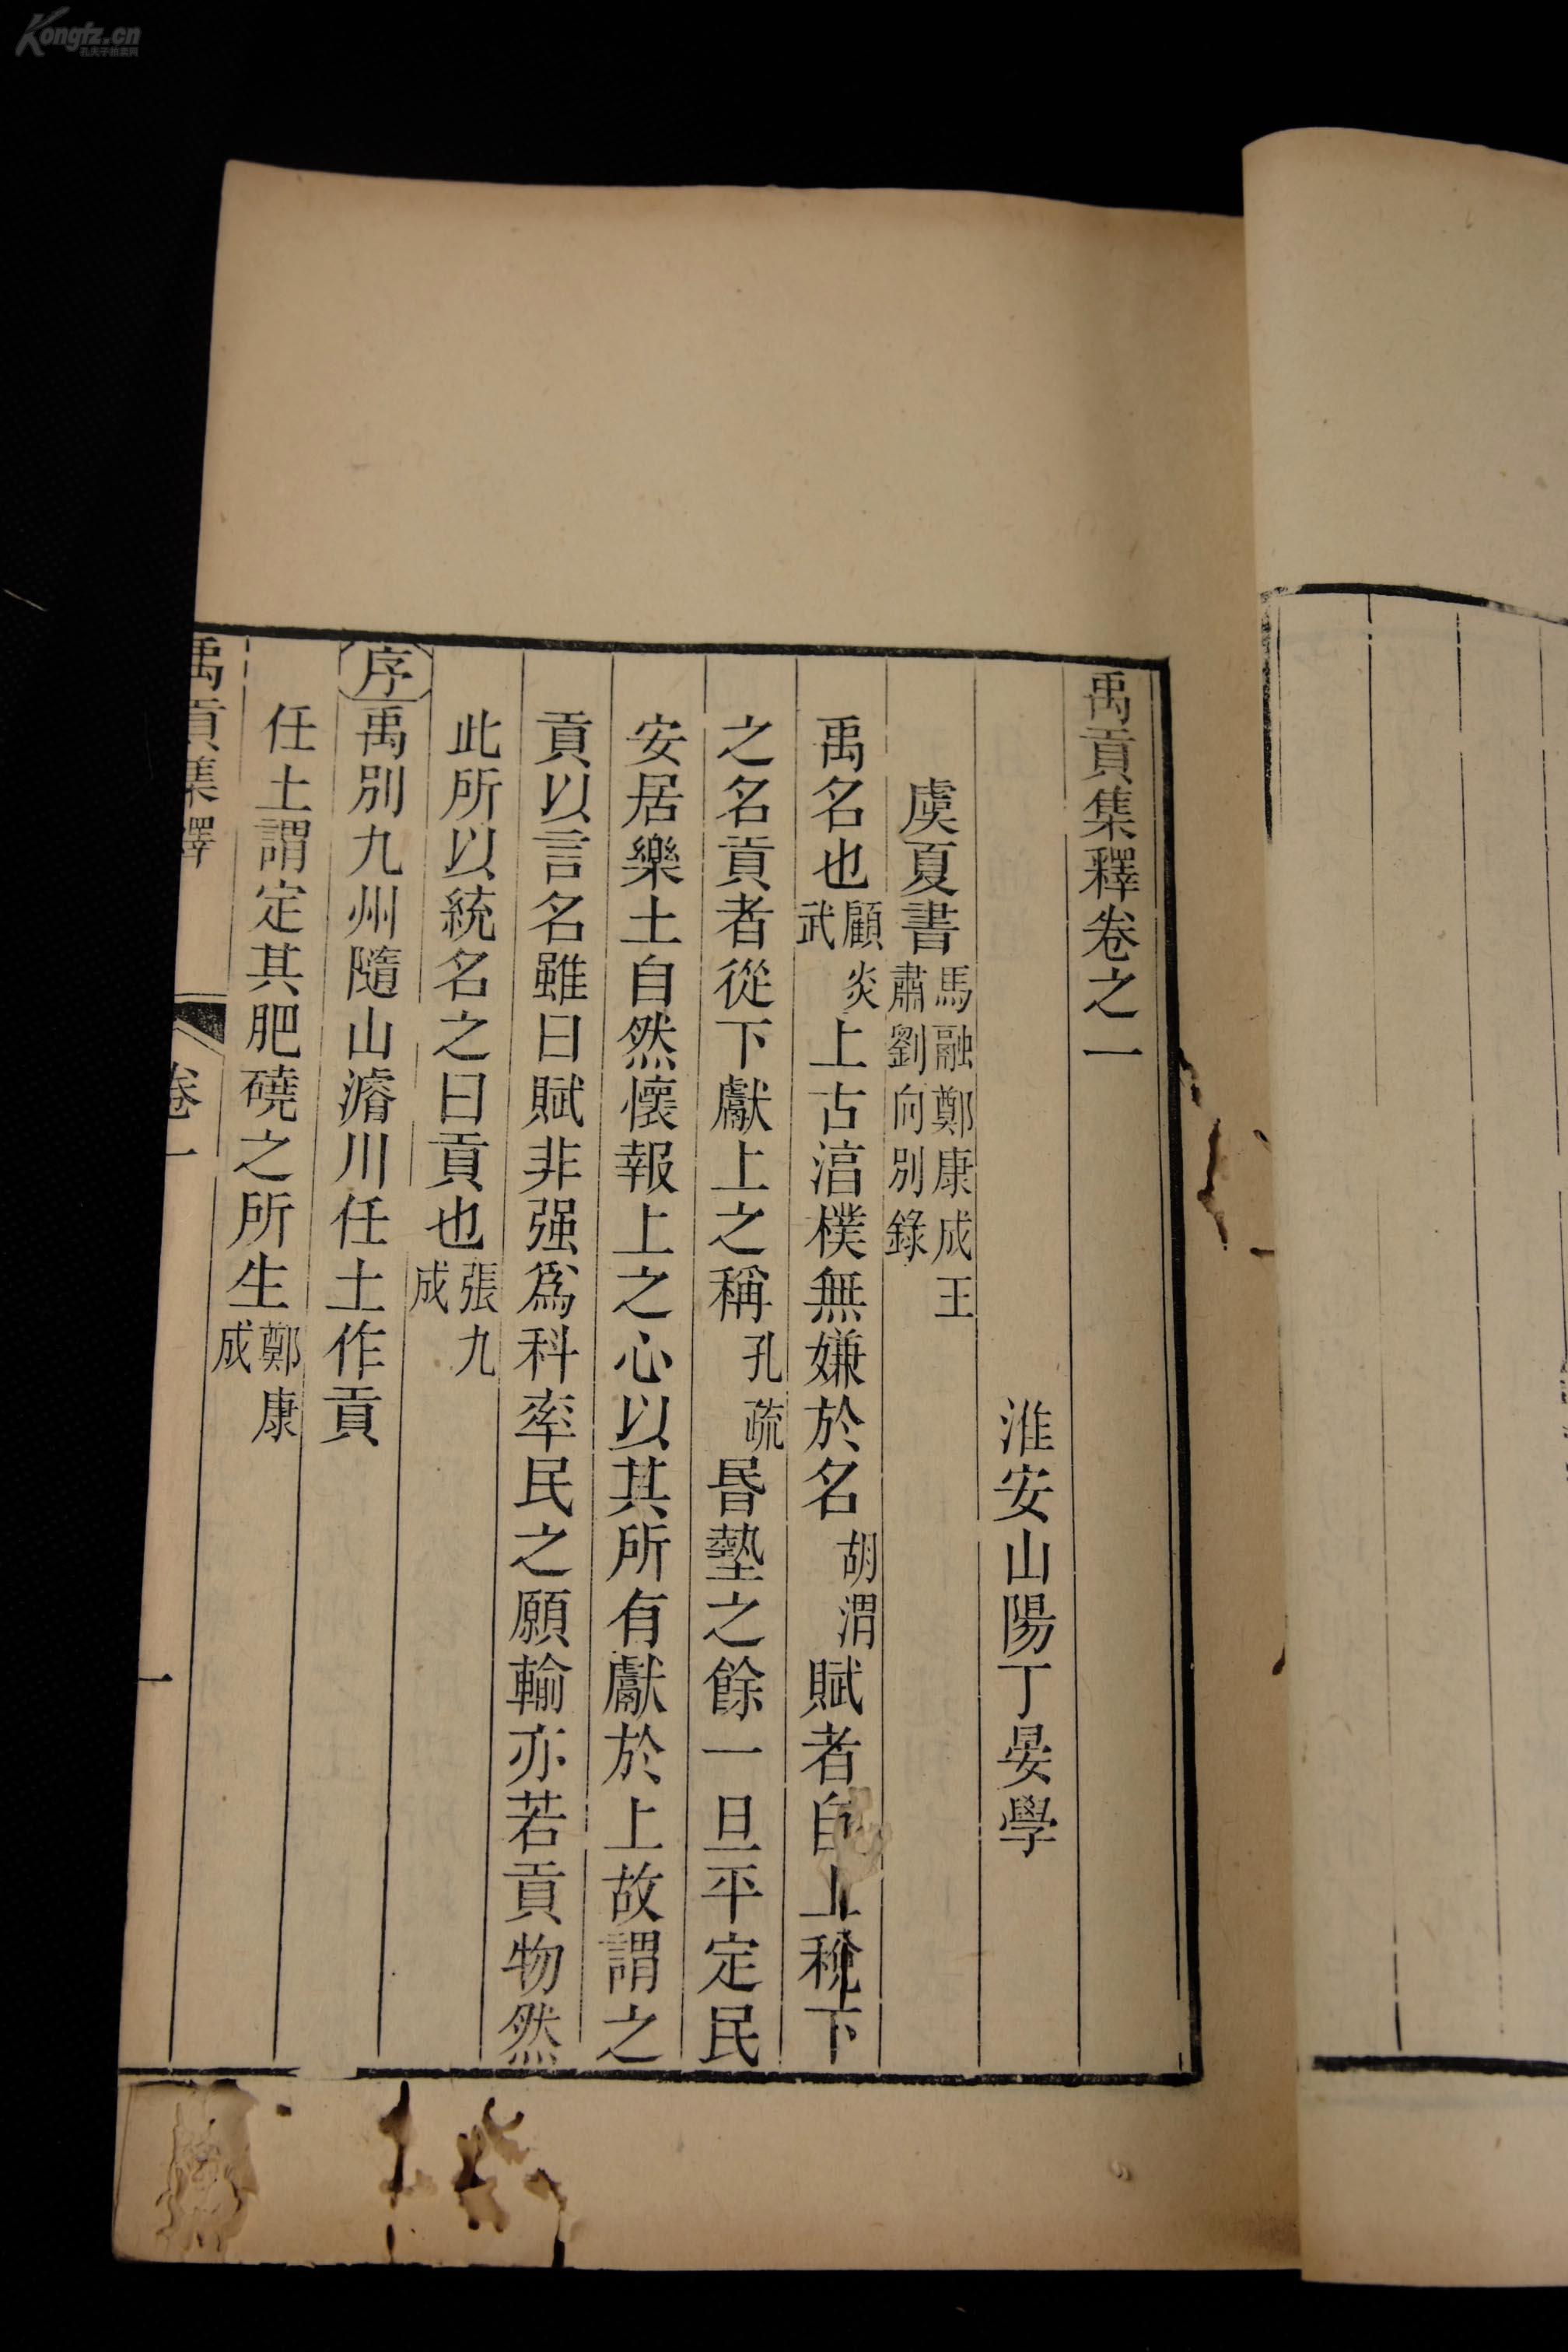 禹貢集釋卷之一
淮安山陽丁晏學
虞夏書馬融鄭康成王肅劉向別錄
禹名也顧炎武上古湻樸無嫌於名胡渭賦者自上稅下
之名貢者從下獻上之稱孔疏昬墊之餘一旦平定民
安居樂土自然懷報上之心以其所有獻於上故謂之
貢以言名雖曰賦非强爲科率民之願輸亦若貢物然
此所以統名之曰貢也張九成
序禹別九州隨山濬川任土作貢
任土謂定其肥磽之所生鄭康成
禹貢集釋 卷一 一
Kongfz.cn
孔夫子旧书网